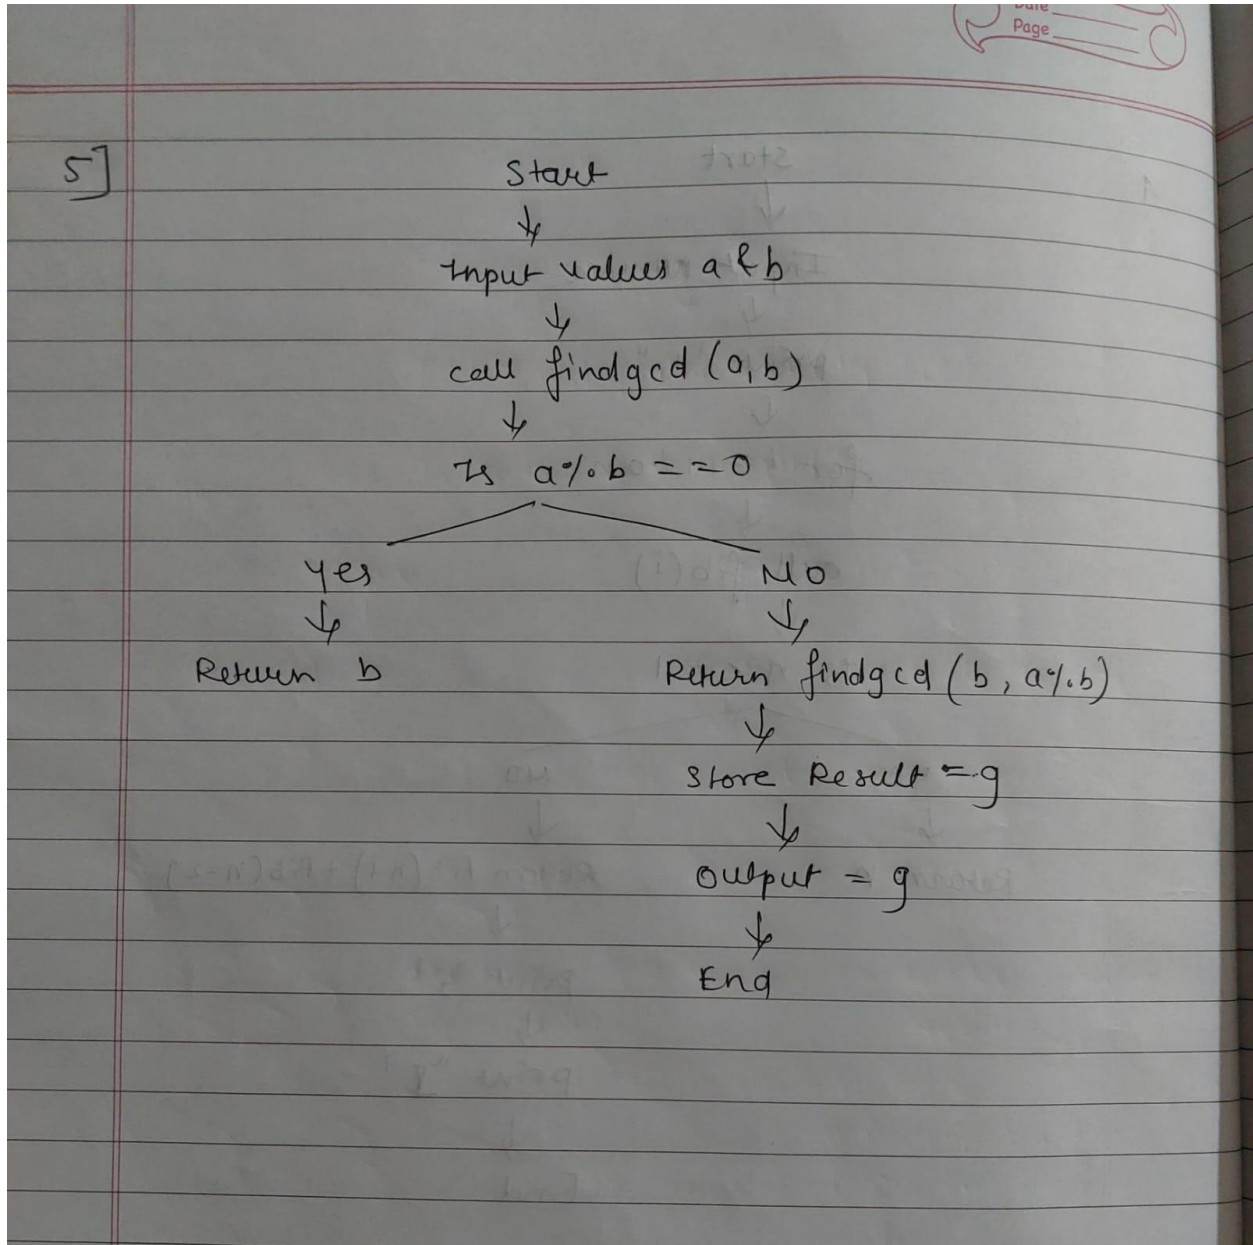 Date
Page
5]
Start
↓
Input values a & b
↓
call findgcd (a, b)
↓
Is a % b = = 0
Yes No
↓ ↓
Return b Return findgcd (b, a % b)
↓
Store Result = g
↓
Output = g
↓
End